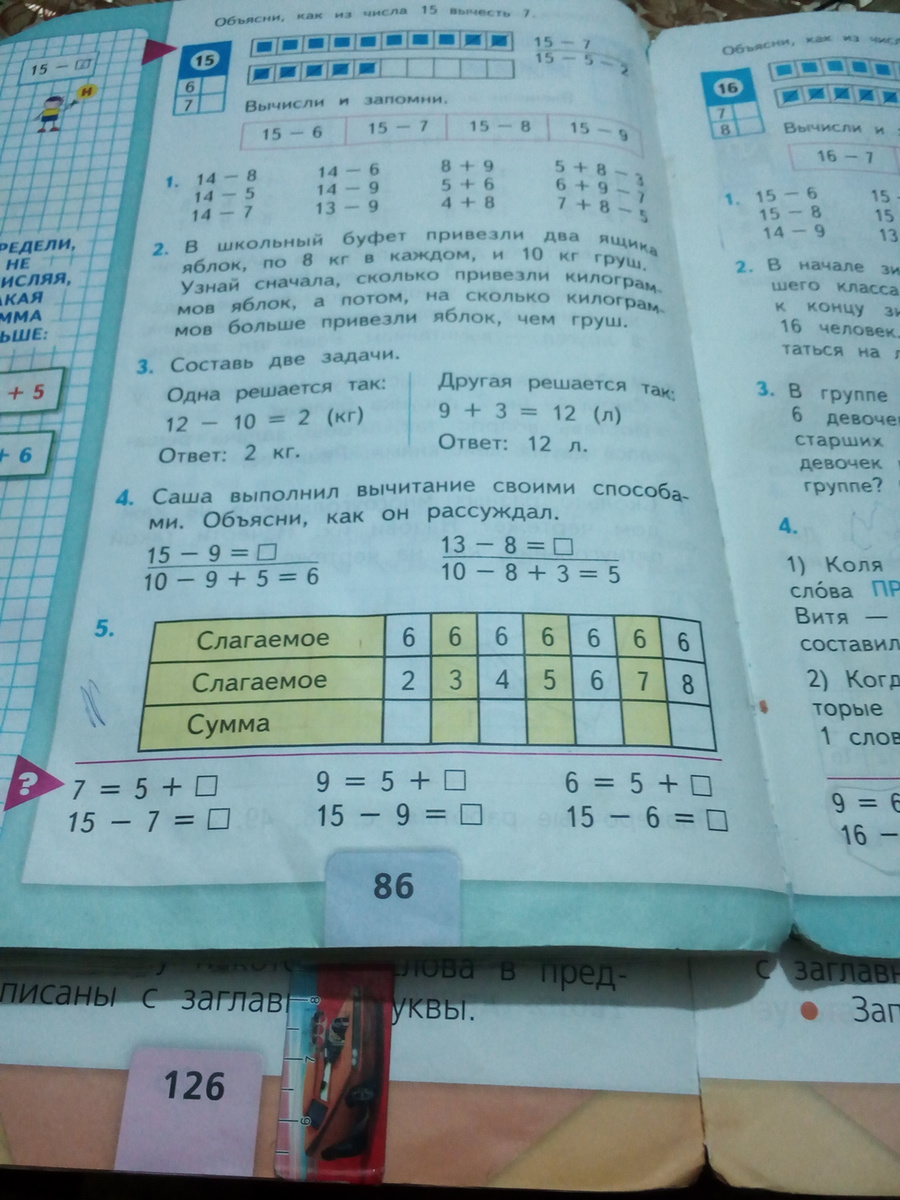 15 – □
Н
РЕДЕЛИ,
НЕ
ИСЛЯЯ,
АКАЯ
ММА
ЬШЕ:
+ 5
+ 6
Объясни, как из числа 15 вычесть 7.
15
6
7
15 – 7
15 – 5 – 2
Вычисли и запомни.
15 – 6 15 – 7 15 – 8 15 – 9
1. 14 – 8 14 – 6 8 + 9 5 + 8 – 3
14 – 5 14 – 9 5 + 6 6 + 9 – 7
14 – 7 13 – 9 4 + 8 7 + 8 – 5
2. В школьный буфет привезли два ящика
яблок, по 8 кг в каждом, и 10 кг груш.
Узнай сначала, сколько привезли килограм-
мов яблок, а потом, на сколько килограм-
мов больше привезли яблок, чем груш.
3. Составь две задачи.
Одна решается так: Другая решается так:
12 – 10 = 2 (кг) 9 + 3 = 12 (л)
Ответ: 2 кг. Ответ: 12 л.
4. Саша выполнил вычитание своими способа-
ми. Объясни, как он рассуждал.
15 – 9 = □ 13 – 8 = □
10 – 9 + 5 = 6 10 – 8 + 3 = 5
5.
Слагаемое 6 6 6 6 6 6 6
Слагаемое 2 3 4 5 6 7 8
Сумма
?
7 = 5 + □ 9 = 5 + □ 6 = 5 + □
15 – 7 = □ 15 – 9 = □ 15 – 6 = □
86
Объясни, как из числ
16
7
8
Вычисли и з
16 – 7
1. 15 – 6 15 –
15 – 8 15
14 – 9 13
2. В начале зи
шего класса
к концу зи
16 человек.
таться на л
3. В группе
6 девочек
старших
девочек
группе?
4.
1) Коля
слóва ПР
Витя —
составил
2) Когд
торые
1 слов
9 = 6
16 –
лова в пред-
писаны с заглав уквы.
126
8
7
6
с заглавн
• Зап